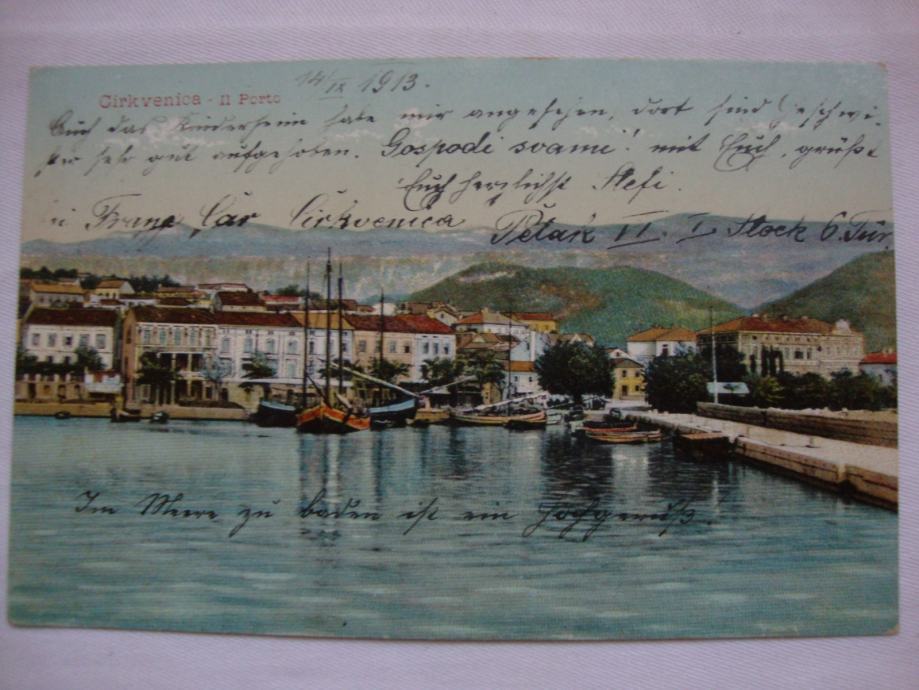 14/IX 1913.
Cirkvenica - Il Porto
Auch das Kinderheim habe mir angesehen, dort sind Geschwi-
ster sehr gut aufgehoben. Gospodi svami! mit Euch, grüßt
Euch herzlichst Stefi.
Franz Čar Cirkvenica Petak II. I Stock 6. Tür
Im Meere zu baden ist ein Hochgenuß.